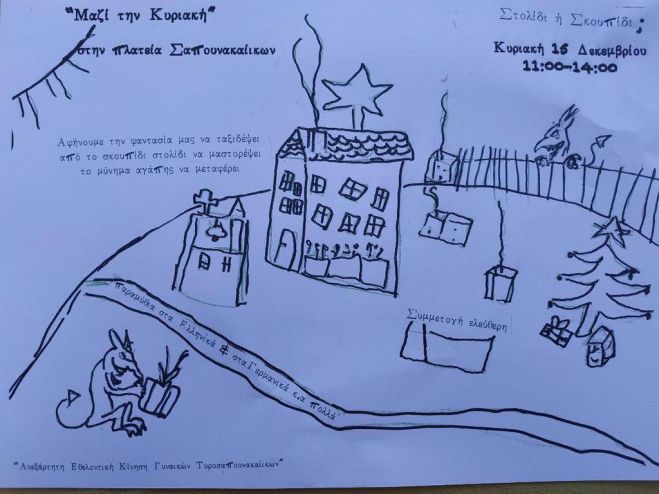 "Μαζί την Κυριακή"
στην πλατεία Σαπουνακαίικων
Στολίδι ή Σκουπίδι;
Κυριακή 15 Δεκεμβρίου
11:00-14:00
Αφήνουμε την φαντασία μας να ταξιδέψει
από το σκουπίδι στολίδι να μαστορέψει
το μύνημα αγάπης να μεταφέρει
παραμύθια στα Ελληνικά & στα Γερμανικά κ.α πολλά
Συμμετοχή ελεύθερη
"Ανεξάρτητη Εθελοντική Κίνηση Γυναικών Τυροσαπουνακαίικων"